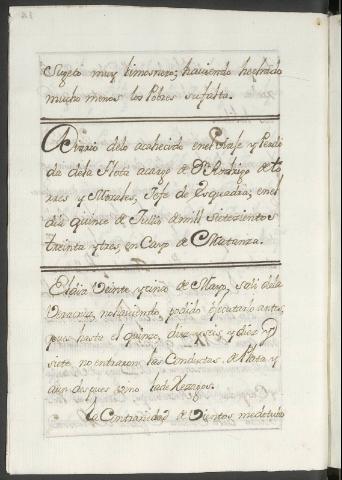 Sugeto muy limosnero; haviendo hechado
mucho menos los Pobres su falta.
Diario delo acahecido en el Viaje y Perdi
da dela Flota acargo de Dn. Rodrigo de To
rres y Morales, Jefe de Esquadra; en el
dia quince de Julio de mil setezientos
treinta y tres, en Cayo de Matanza.
El dia Veinte y cinco de Mayo, sali dela
Veracruz, no haviendo podido ejecutarlo antes,
pues hasta el quince, diez y seis, y diez y
siete no entraron las Conductas de Plata y
aun despues vino la de Rezagos.
La Contrariedad de Vientos me detubo